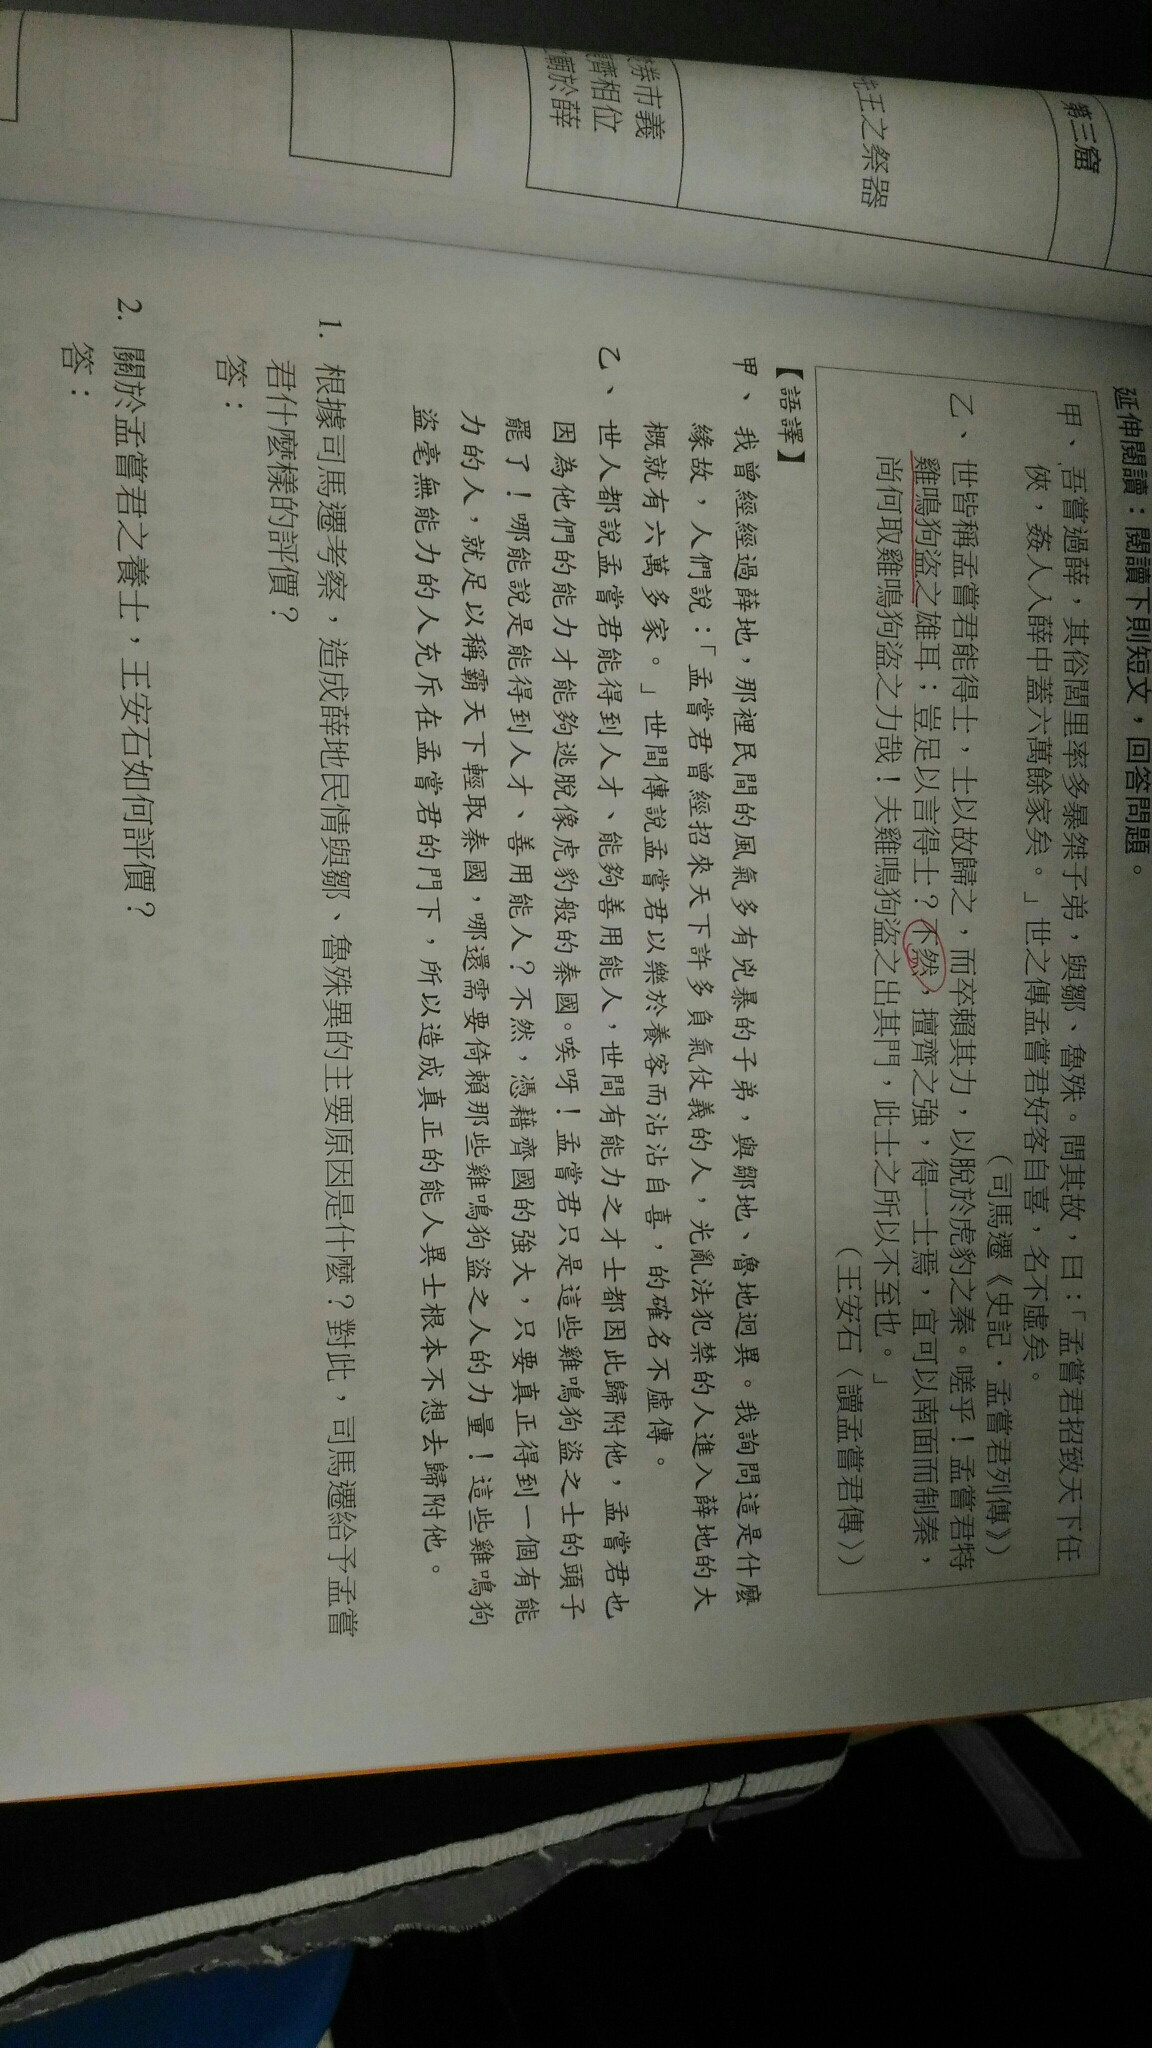 第三窟
先王之祭器
券市義
齊相位
廟於薛
延伸閱讀：閱讀下則短文，回答問題。
甲、吾嘗過薛，其俗閭里率多暴桀子弟，與鄒、魯殊。問其故，曰：「孟嘗君招致天下任
俠，姦人入薛中蓋六萬餘家矣。」世之傳孟嘗君好客自喜，名不虛矣。
（司馬遷《史記．孟嘗君列傳》）
乙、世皆稱孟嘗君能得士，士以故歸之，而卒賴其力，以脫於虎豹之秦。嗟乎！孟嘗君特
雞鳴狗盜之雄耳；豈足以言得士？不然，擅齊之強，得一士焉，宜可以南面而制秦，
尚何取雞鳴狗盜之力哉！夫雞鳴狗盜之出其門，此士之所以不至也。」
（王安石〈讀孟嘗君傳〉）
【語譯】
甲、我曾經經過薛地，那裡民間的風氣多有兇暴的子弟，與鄒地、魯地迥異。我詢問這是什麼
緣故，人們說：「孟嘗君曾經招來天下許多負氣仗義的人，光亂法犯禁的人進入薛地的大
概就有六萬多家。」世間傳說孟嘗君以樂於養客而沾沾自喜，的確名不虛傳。
乙、世人都說孟嘗君能得到人才、能夠善用能人，世間有能力之才士都因此歸附他，孟嘗君也
因為他們的能力才能夠逃脫像虎豹般的秦國。唉呀！孟嘗君只是這些雞鳴狗盜之士的頭子
罷了！哪能說是能得到人才、善用能人？不然，憑藉齊國的強大，只要真正得到一個有能
力的人，就足以稱霸天下輕取秦國，哪還需要倚賴那些雞鳴狗盜之人的力量！這些雞鳴狗
盜毫無能力的人充斥在孟嘗君的門下，所以造成真正的能人異士根本不想去歸附他。
1. 根據司馬遷考察，造成薛地民情與鄒、魯殊異的主要原因是什麼？對此，司馬遷給予孟嘗
君什麼樣的評價？
答：
2. 關於孟嘗君之養士，王安石如何評價？
答：